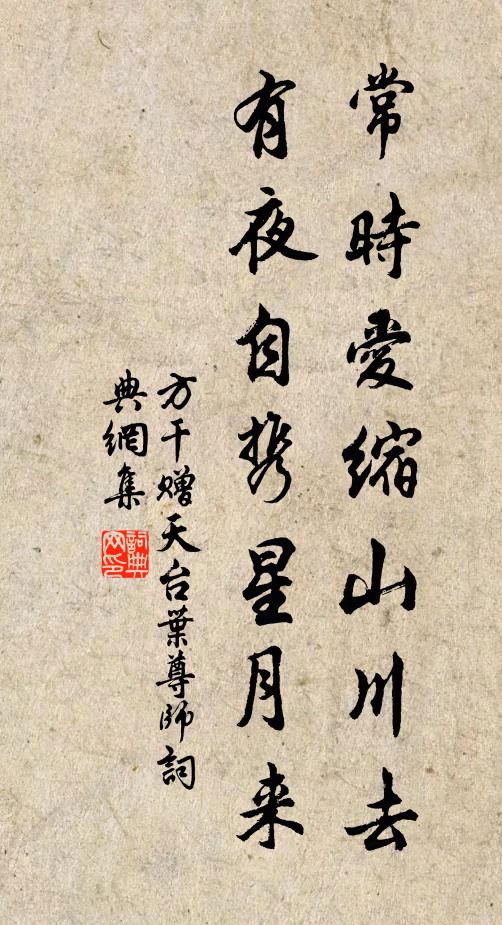 常時愛縮山川去
有夜自携星月来
方干贈天台葉尊師詞
典網集
詞典网印